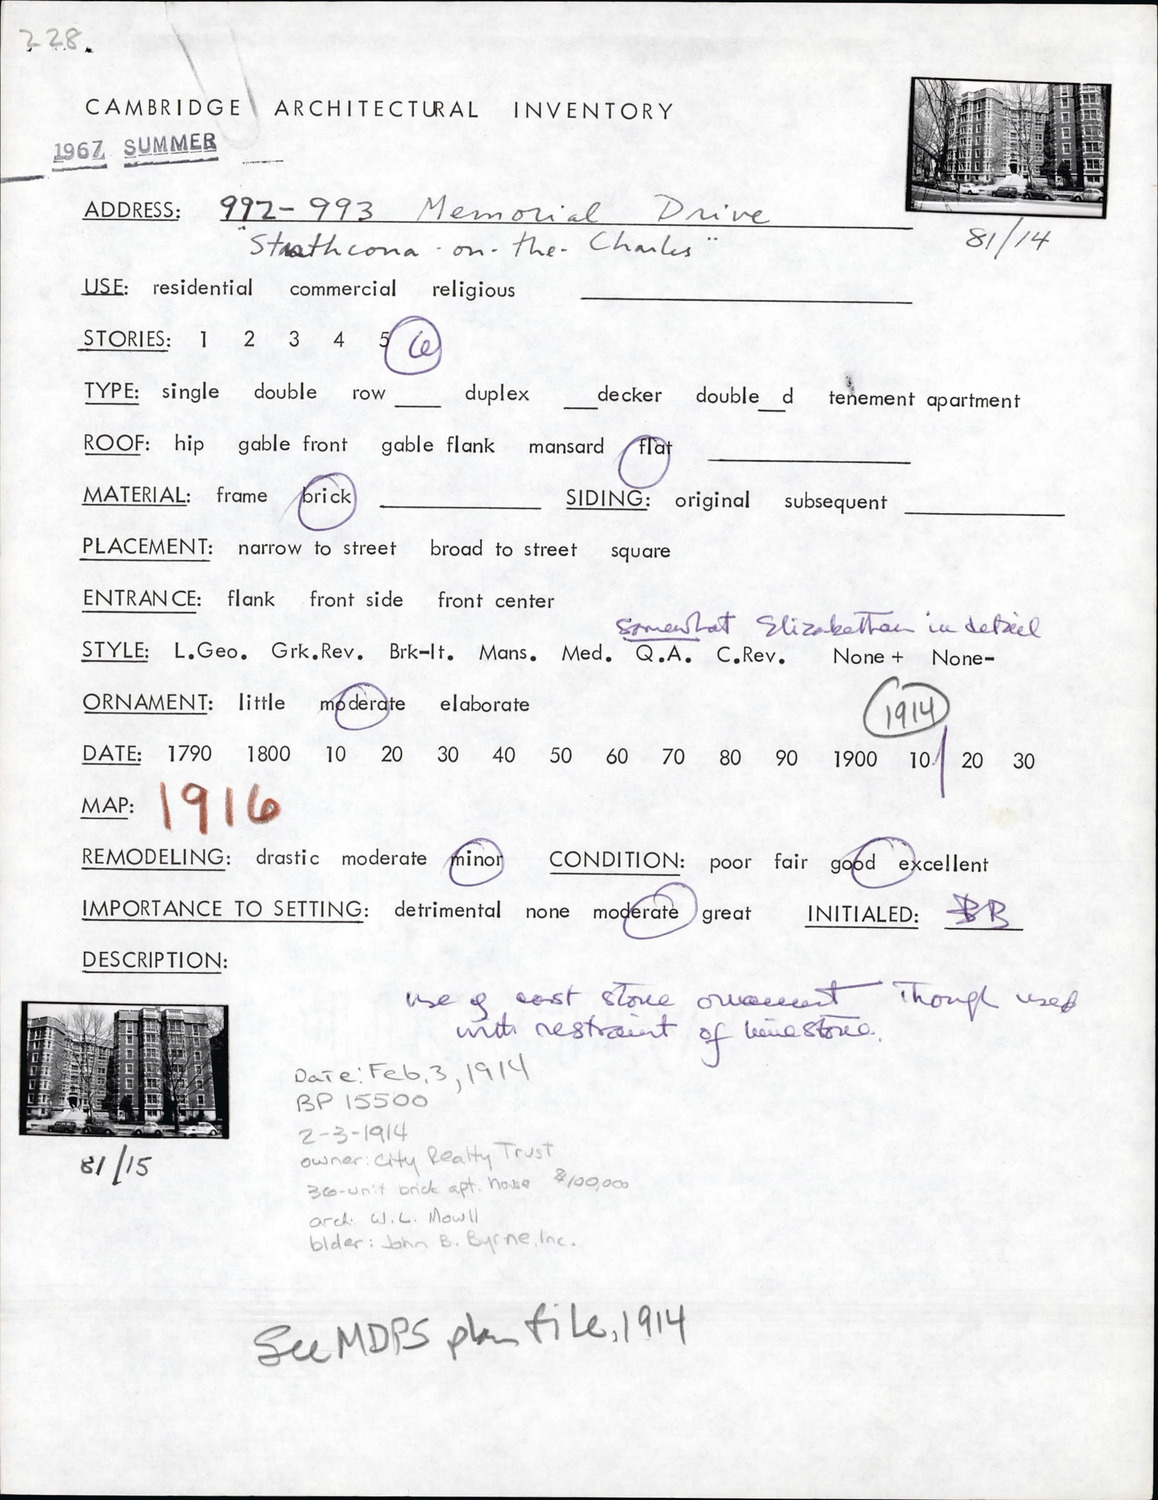 228.
CAMBRIDGE ARCHITECTURAL INVENTORY
1967 SUMMER
ADDRESS: 992-993 Memorial Drive
"Strathcona-on-the-Charles"
81/14
USE: residential commercial religious
STORIES: 1 2 3 4 5 6
TYPE: single double row ___ duplex ___decker double__d tenement apartment
ROOF: hip gable front gable flank mansard flat
MATERIAL: frame brick SIDING: original subsequent
PLACEMENT: narrow to street broad to street square
ENTRANCE: flank front side front center
somewhat Elizabethan in detail
STYLE: L.Geo. Grk.Rev. Brk-It. Mans. Med. Q.A. C.Rev. None + None-
ORNAMENT: little moderate elaborate
1914
DATE: 1790 1800 10 20 30 40 50 60 70 80 90 1900 10 20 30
MAP: 1916
REMODELING: drastic moderate minor CONDITION: poor fair good excellent
IMPORTANCE TO SETTING: detrimental none moderate great INITIALED: BB
DESCRIPTION:
use of cast stone ornament Though used
with restraint of limestone.
Date: Feb. 3, 1914
BP 15500
2-3-1914
owner: City Realty Trust
36-unit brick apt. house $100,000
arch. W.L. Mowll
blder: John B. Byrne, Inc.
81/15
See MDPS plan file, 1914